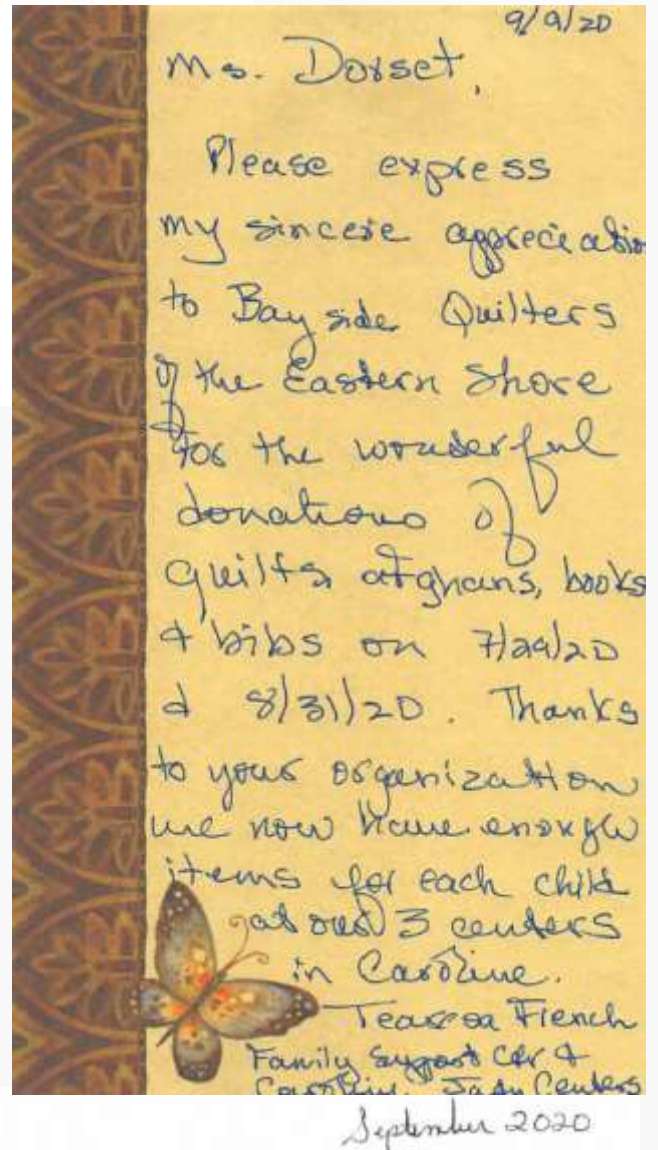 9/9/20
Ms. Dorset,
Please express
my sincere appreciation
to Bayside Quilters
of the Eastern Shore
for the wonderful
donations of
quilts, afghans, books
& bibs on 7/29/20
& 8/31/20. Thanks
to your organization
we now have enough
items for each child
at our 3 centers
in Caroline.
French
Family Support Ctr &
Caroline Judy Centers
September 2020